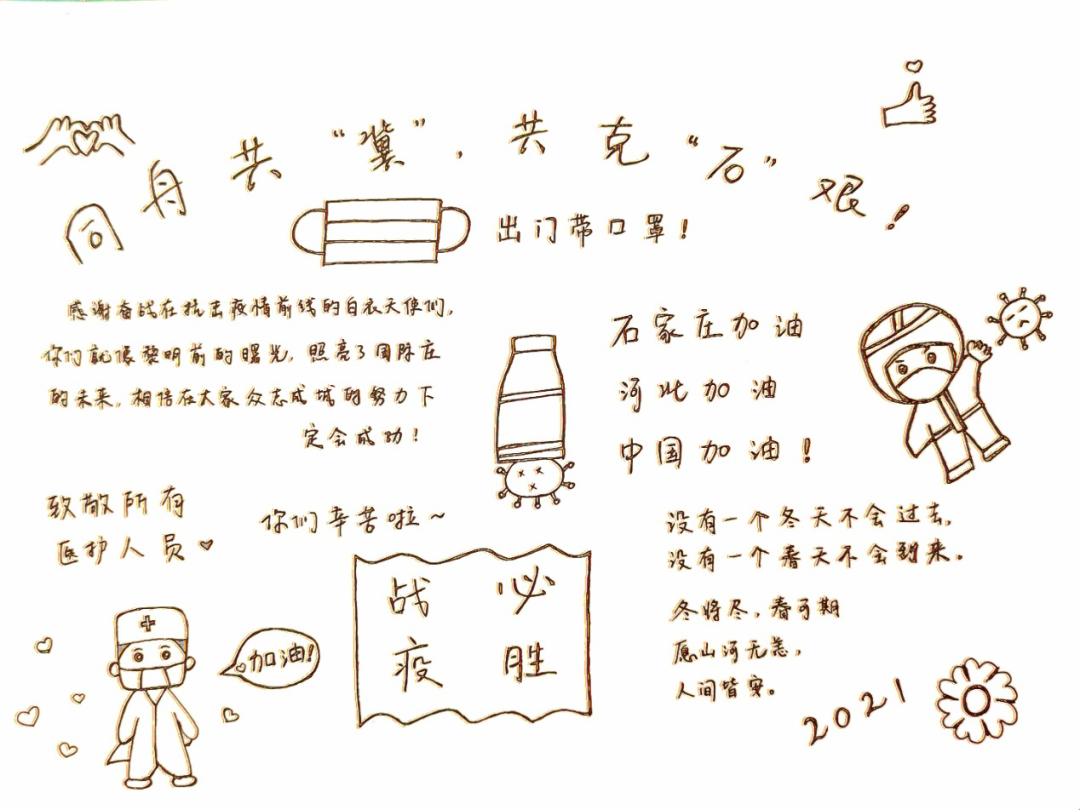 同舟共“冀”，共克“石”艰！
出门带口罩！
感谢奋战在抗击疫情前线的白衣天使们，
你们就像黎明前的曙光，照亮了国际庄
的未来，相信在大家众志成城的努力下
定会成功！
石家庄加油
河北加油
中国加油！
致敬所有
医护人员
你们辛苦啦~
没有一个冬天不会过去，
没有一个春天不会到来。
冬将尽，春可期
愿山河无恙，
人间皆安。
战必
疫胜
加油！
2021